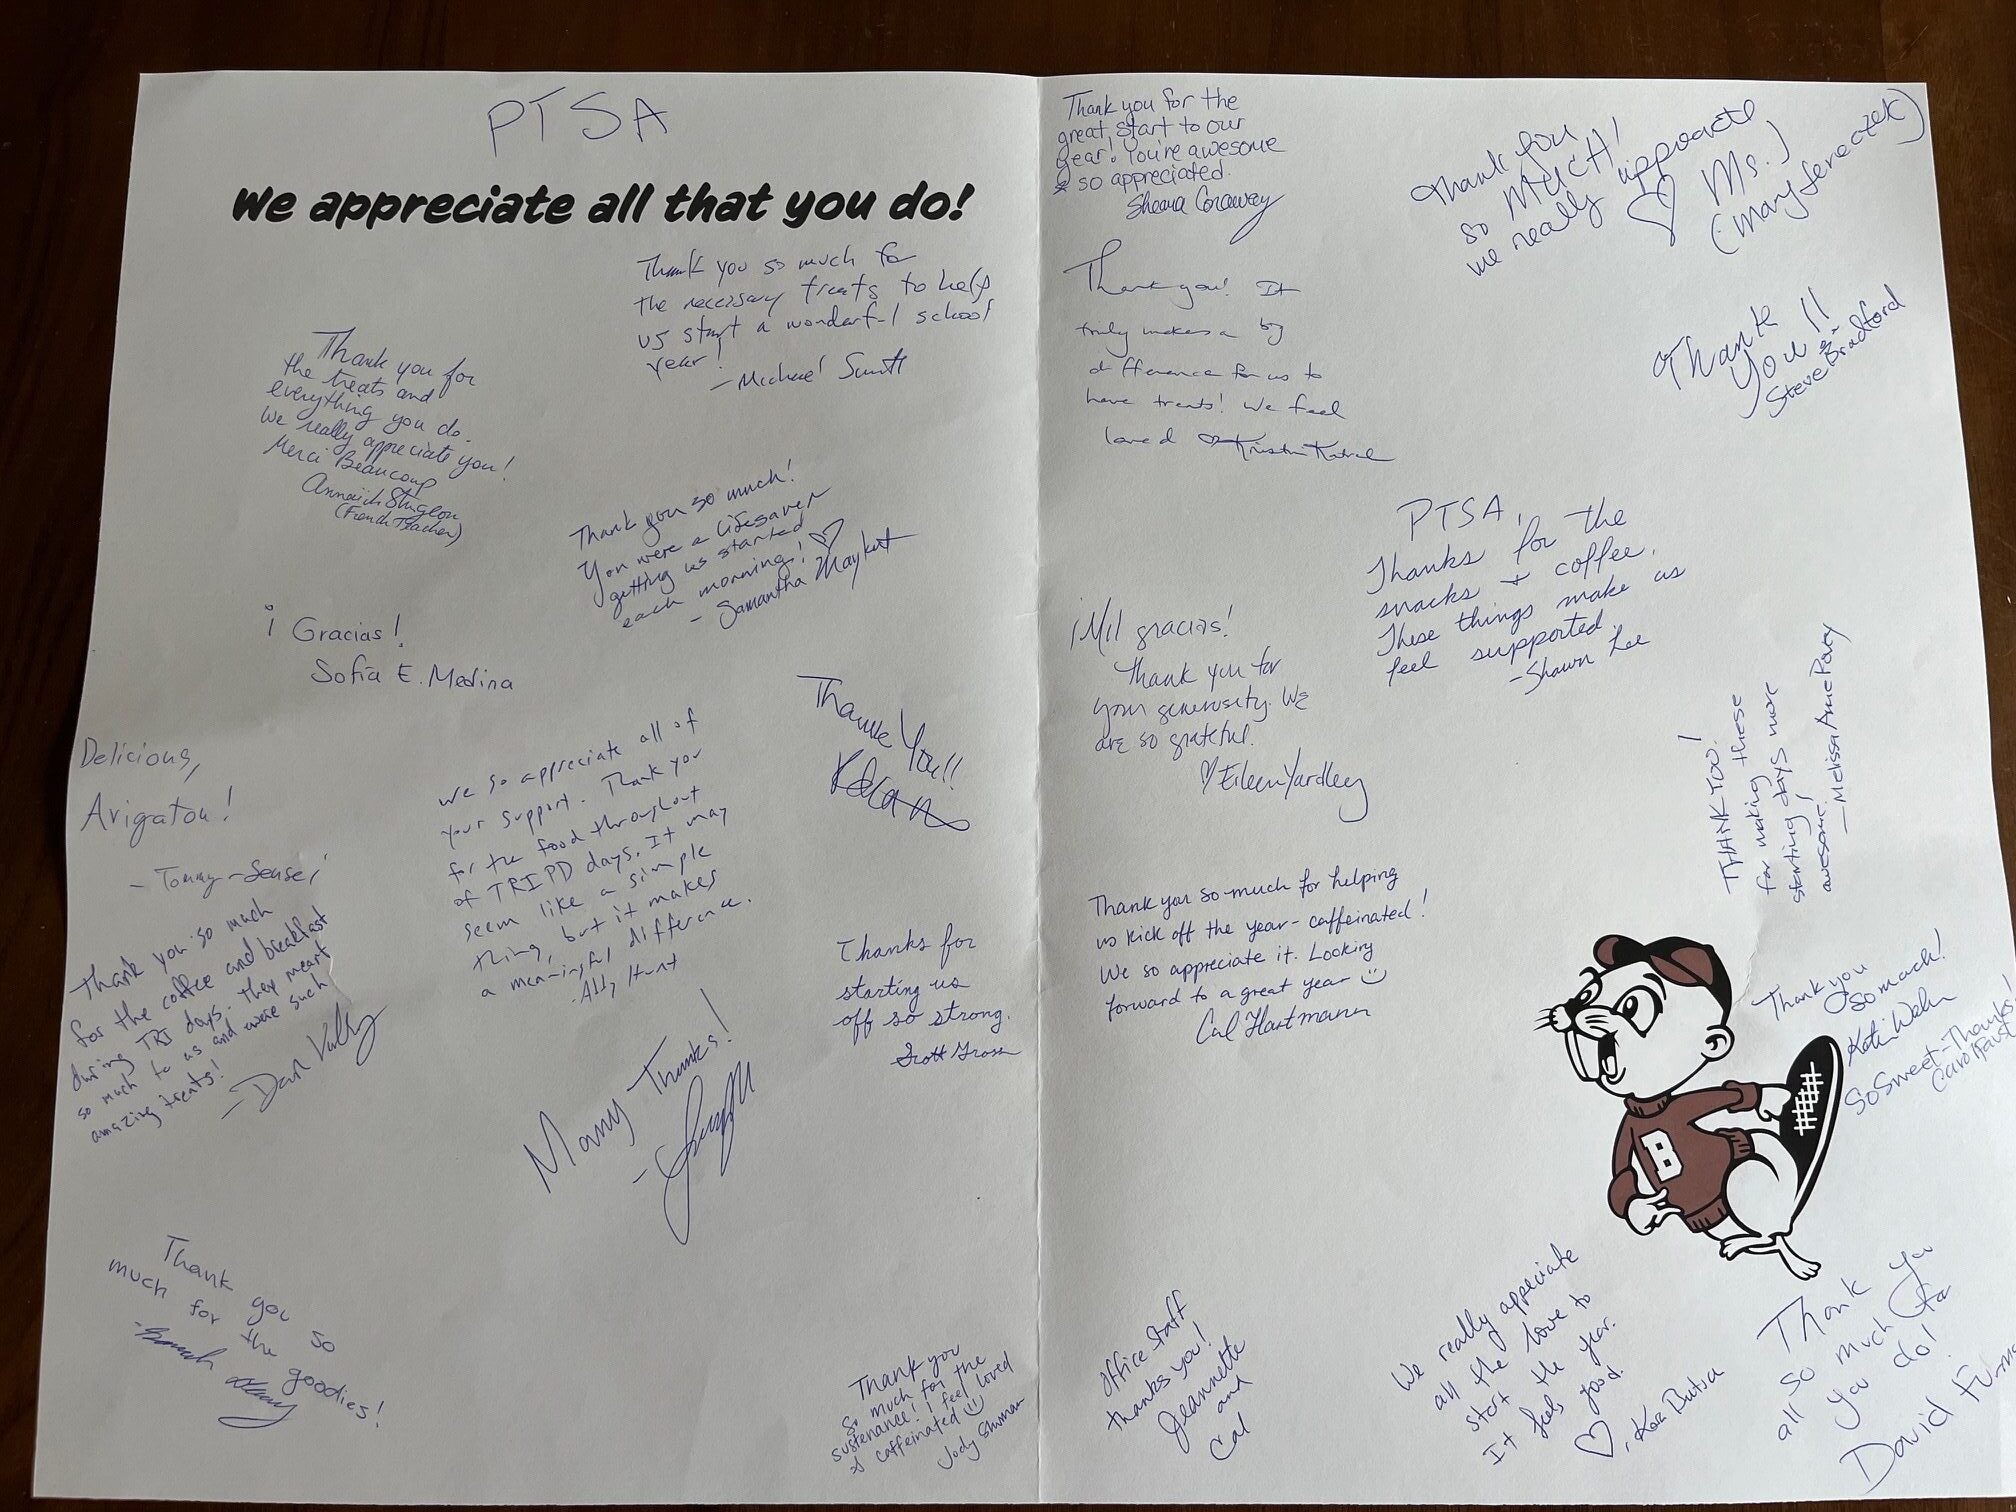 PTSA
We appreciate all that you do!
Thank you so much for
the necessary treats to help
us start a wonderful school
year!
- Michael Smith
Thank you for
the treats and
everything you do.
We really appreciate you!
Merci Beaucoup
Sturgeon
(French Teacher)
Thank you so much!
You were a lifesaver
getting us started
each morning! ♡
- Samantha Maykut
¡Gracias!
Sofía E. Medina
Delicious,
Arigatou!
- Tommy-Sensei
We so appreciate all of
your support. Thank you
for the food throughout
of TRI PD days. It may
seem like a simple
thing, but it makes
a meaningful difference.
Hunt
Thank You!!
Thank you so much
for the coffee and breakfast
during TRI days. They meant
so much to us and were such
amazing treats!
- Dan
Thanks for
starting us
off so strong.
Scott
Many Thanks!
Thank you so
much for the
goodies!
Thank you
so much for the
sustenance! I feel loved
& caffeinated ☺
Jody
Thank you for the
great start to our
year! You're awesome
& so appreciated.
Sheena Conaway
Thank you
so MUCH!
We really appreciate
♡ Ms. J
(Mary Jeneczek)
Thank you! It
truly makes a big
difference for us to
have treats! We feel
loved ♡ Kristin
Thank
you!!
Steve Bradford
PTSA,
Thanks for the
snacks + coffee.
These things make us
feel supported.
- Shawn Lee
¡Mil gracias!
Thank you for
your generosity. We
are so grateful.
♡ Eileen Yardley
THANK TOO!
for making these
starting days more
awesome!
- Melissa Anne
Thank you so much for helping
us kick off the year - caffeinated!
We so appreciate it. Looking
forward to a great year ☺
Cal Hartmann
Thank you
so much!
Katie
So Sweet - Thanks!
Carol Faust
B
Office Staff
thanks you!
Jeannette
and
Cal
We really appreciate
all the love to
start the year.
It feels good.
♡,
Thank you
so much for
all
you do!
David